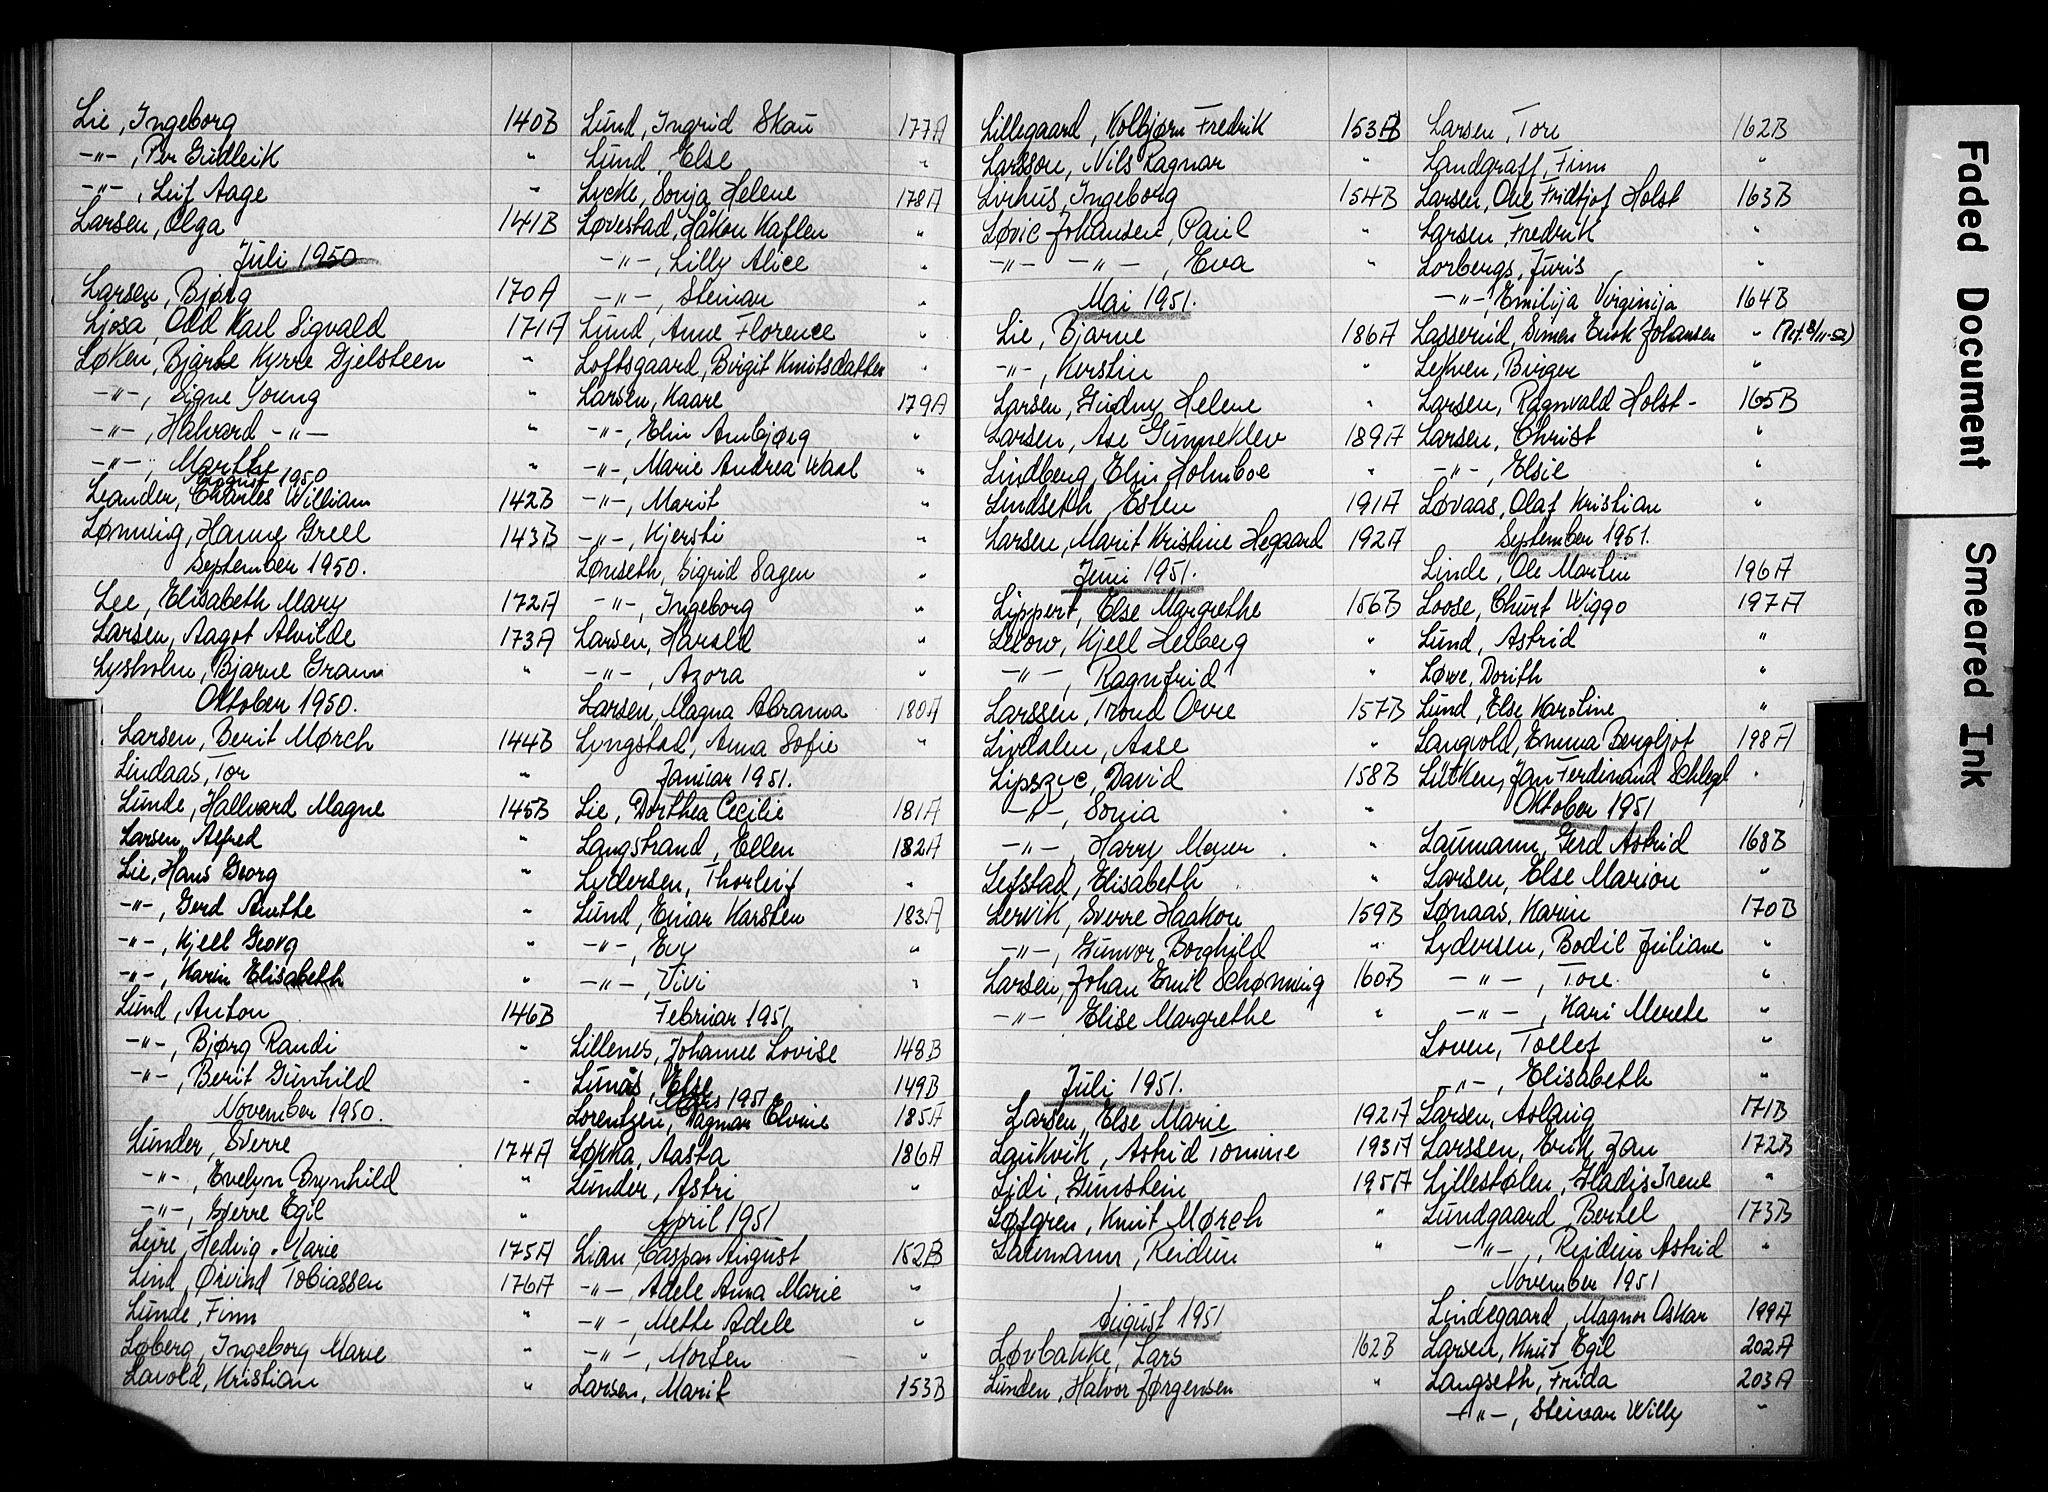 Lie, Ingeborg 140B
-"-, Per Gudleik "
-"-, Leif Aage "
Larsen, Olga 141B
Juli 1950
Larsen, Bjørg 170A
Ljosa, Odd Karl Sigvald 171A
Løken, Bjarne Kyrre Gjelsteen "
-"-, Signe Young "
-"-, Halvard -"- "
-"-, Marthe "
August 1950
Leander, Charles William 142B
Lønning, Hanne Grell 143B
September 1950.
Lee, Elisabeth Mary 172A
Larsen, Aagot Alvilde 173A
Lysholm, Bjarne Gram "
Oktober 1950.
Larsen, Berit Mørch 144B
Lindaas, Tor "
Lunde, Hallvard Magne 145B
Larsen, Alfred "
Lie, Hans Georg "
-"-, Gerd Anethe "
-"-, Kjell Georg "
-"-, Karin Elisabeth "
Lund, Anton 146B
-"-, Bjørg Randi "
-"-, Berit Gunhild "
November 1950.
Lunder, Sverre 174A
-"-, Evelyn Brynhild "
-"-, Sverre Egil "
Leire, Hedvig Marie 175A
Lind, Øivind Tobiassen 176A
Lunde, Finn "
Løberg, Ingeborg Marie "
Lavold, Kristian "
Lund, Ingrid Skau 177A
Lund, Else "
Lycke, Sonja Helene 178A
Løvestad, Håkon Kaflen "
-"-, Lilly Alice "
-"-, Steinar "
Lund, Anne Florence "
Loftsgaard, Birgit Knutsdatter "
Larsen, Kaare 179A
-"-, Elin Ambjørg "
-"-, Marie Andrea Waal "
-"-, Marit "
-"-, Kjersti "
Lønseth, Sigrid Sagen "
-"-, Ingeborg "
Larsen, Harald "
-"-, Azora "
Larsen, Magna Abrama 180A
Lyngstad, Anna Sofie "
Januar 1951.
Lie, Dorthea Cecilie 181A
Langstrand, Ellen 182A
Lydersen, Thorleif "
Lund, Einar Karsten 183A
-"-, Evy "
-"-, Vivi "
Februar 1951
Lillenes, Johanne Lovise 148B
Lunås, Else 149B
Mars 1951.
Lorentzen, Dagmar Elvine 185A
Løkka, Aasta 186A
Lunder, Astri "
April 1951
Lian, Caspar August 152B
-"-, Adele Anna Marie "
-"-, Mette Adele "
-"-, Morten "
Larsen, Marit 153B
Lillegaard, Kolbjørn Fredrik 153B
Larsson, Nils Ragnar "
Livhus, Ingeborg 154B
Løvic Johansen, Paul "
-"- -"-, Eva "
Mai 1951.
Lie, Bjarne 186A
-"-, Kerstin "
Larsen, Gudny Helene "
Larsen, Ase Gunneklev 189A
Lindberg, Elin Holmboe "
Lindseth, Østen 191A
Larsen, Marit Kristine Hegaard 192A
Juni 1951.
Lippert, Else Margrethe 156B
Letow, Kjell Heiberg "
-"-, Ragnfrid "
Larssen, Trond Orre 157B
Livdalen, Aase "
Lipszyc, David 158B
-"-, Sonia "
-"-, Harry Meyer "
Leistad, Elisabeth "
Lervik, Sverre Haakon 159B
-"-, Gunvor Borghild "
Larsen, Johan Emil Schønning 160B
-"- Elise Margrethe "
Juli 1951.
Larsen, Else Marie 192A
Laukvik, Astrid Tomine 193A
Lidi, Gunstein 195A
Løfgren, Knut Mørch "
Laumann, Reidun "
August 1951
Løvbakke, Lars 162B
Lunden, Halvor Jørgensen "
Larsen, Tore 162B
Landgraff, Finn "
Larsen, Ove Fridtjof Holst 163B
Larsen, Fredrik "
Lorbergs, Juris "
-"-, Emilija Virginija 164B
Lasserud, Simen Erik Johansen " (Ret. 8/11-52)
Lekven, Birger "
Larsen, Ragnvald Holst- 165B
Larsen, Christ "
-"-, Elsie "
Løvaas, Olaf Kristian "
September 1951.
Linde, Ole Martin 196A
Loose, Churt Wiggo 197A
Lund, Astrid "
Løwe, Dorith "
Lund, Else Karoline "
Langvold, Emma Bergljot 198A
Lütken, Jan Ferdinand Schlegl "
Oktober 1951
Laumann, Gerd Astrid 168B
Larsen, Else Marion "
Lønaas, Karin 170B
Lydersen, Bodil Juliane "
-"-, Tore "
-"-, Kari Merete "
Loven, Tollef "
-"-, Elisabeth "
Larsen, Aslaug 171B
Larssen, Erik Jan 172B
Lillestølen, Gladis Irene "
Lundgaard, Bertel 173B
-"-, Reidun Astrid "
November 1951
Lindegaard, Magnor Oskar 199A
Larsen, Knut Egil 202A
Langseth, Frida 203A
-"-, Steinar Willy "
Faded Document
Smeared Ink